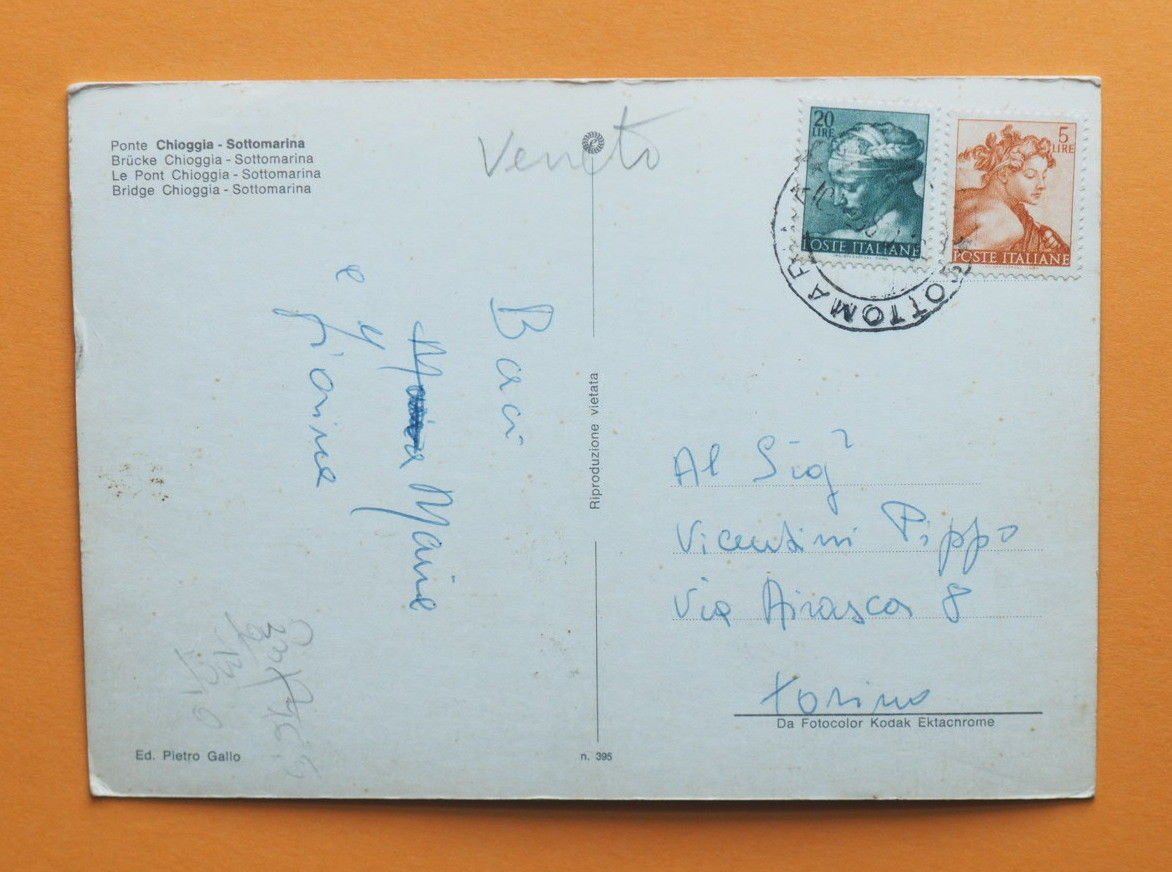 Ponte Chioggia - Sottomarina
Brücke Chioggia - Sottomarina
Le Pont Chioggia - Sottomarina
Bridge Chioggia - Sottomarina
Veneto
20
LIRE
POSTE ITALIANE
5
LIRE
POSTE ITALIANE
SOTTOMARINA
Baci
Maria Maria
e
Riproduzione vietata
Al Sigr
Vicentini Pippo
Via Airasca 8
Torino
Da Fotocolor Kodak Ektachrome
Ed. Pietro Gallo
n. 395